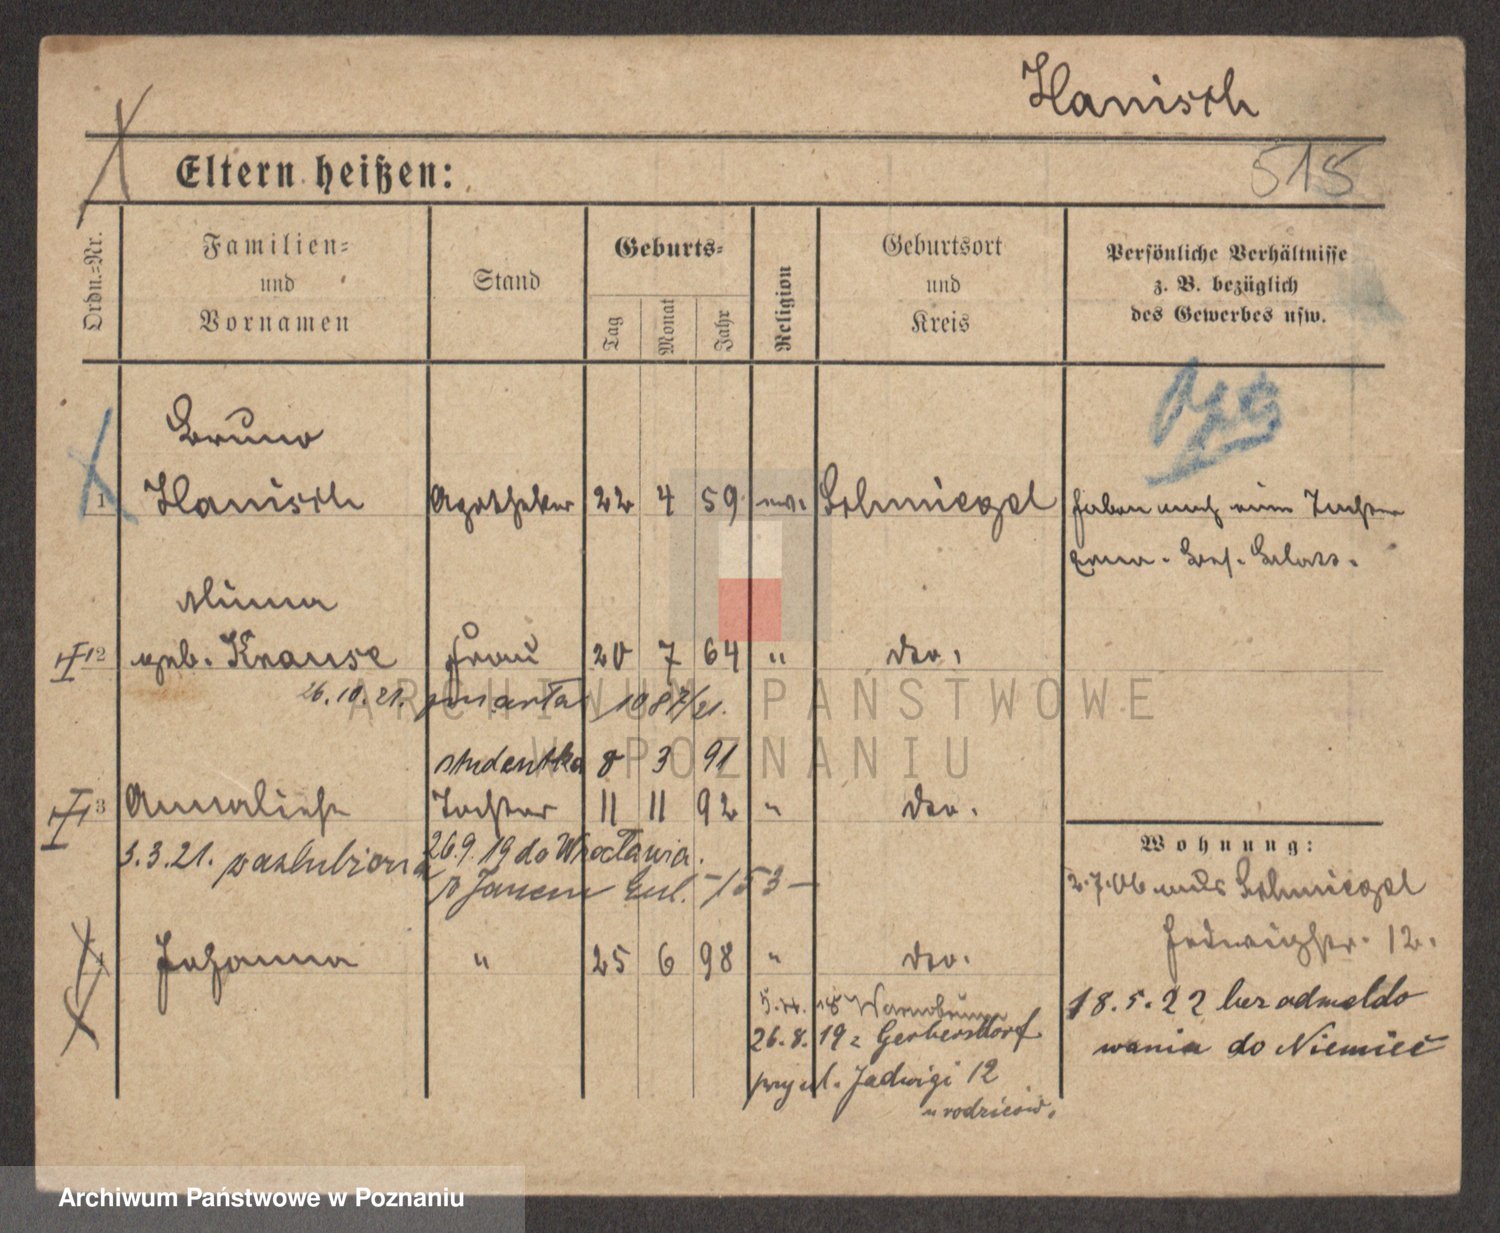 Hanisch
515
Eltern heißen:
Ordn.=Nr.
Familien=
und
Vornamen
Stand
Geburts=
Tag
Monat
Jahr
Religion
Geburtsort
und
Kreis
Persönliche Verhältnisse
z. B. bezüglich
des Gewerbes usw.
Bruno
1 Hanisch Apotheker 22 4 59 ev. Schmiegel haben noch eine Tochter
Erna
Minna
2 geb. Krause Frau 20 7 64 " do.
26.10.21. zmarła 1087/21.
studentka 8 3 91
3 Annaliese Tochter 11 11 92 " do.
3.3.21. zaślubiona 26.9.19 do Wrocławia.
z Janem
Wohnung:
2.7.06 aus Schmiegel
Hedwigstr. 12.
Johanna " 25 6 98 " do.
18 Warmbrunn
26.8.19 z Gerbersdorf
przy ul. Jadwigi 12
u rodziców.
18.5.22 bez odmeldo
wania do Niemiec
ARCHIWUM PAŃSTWOWE
W POZNANIU
Archiwum Państwowe w Poznaniu